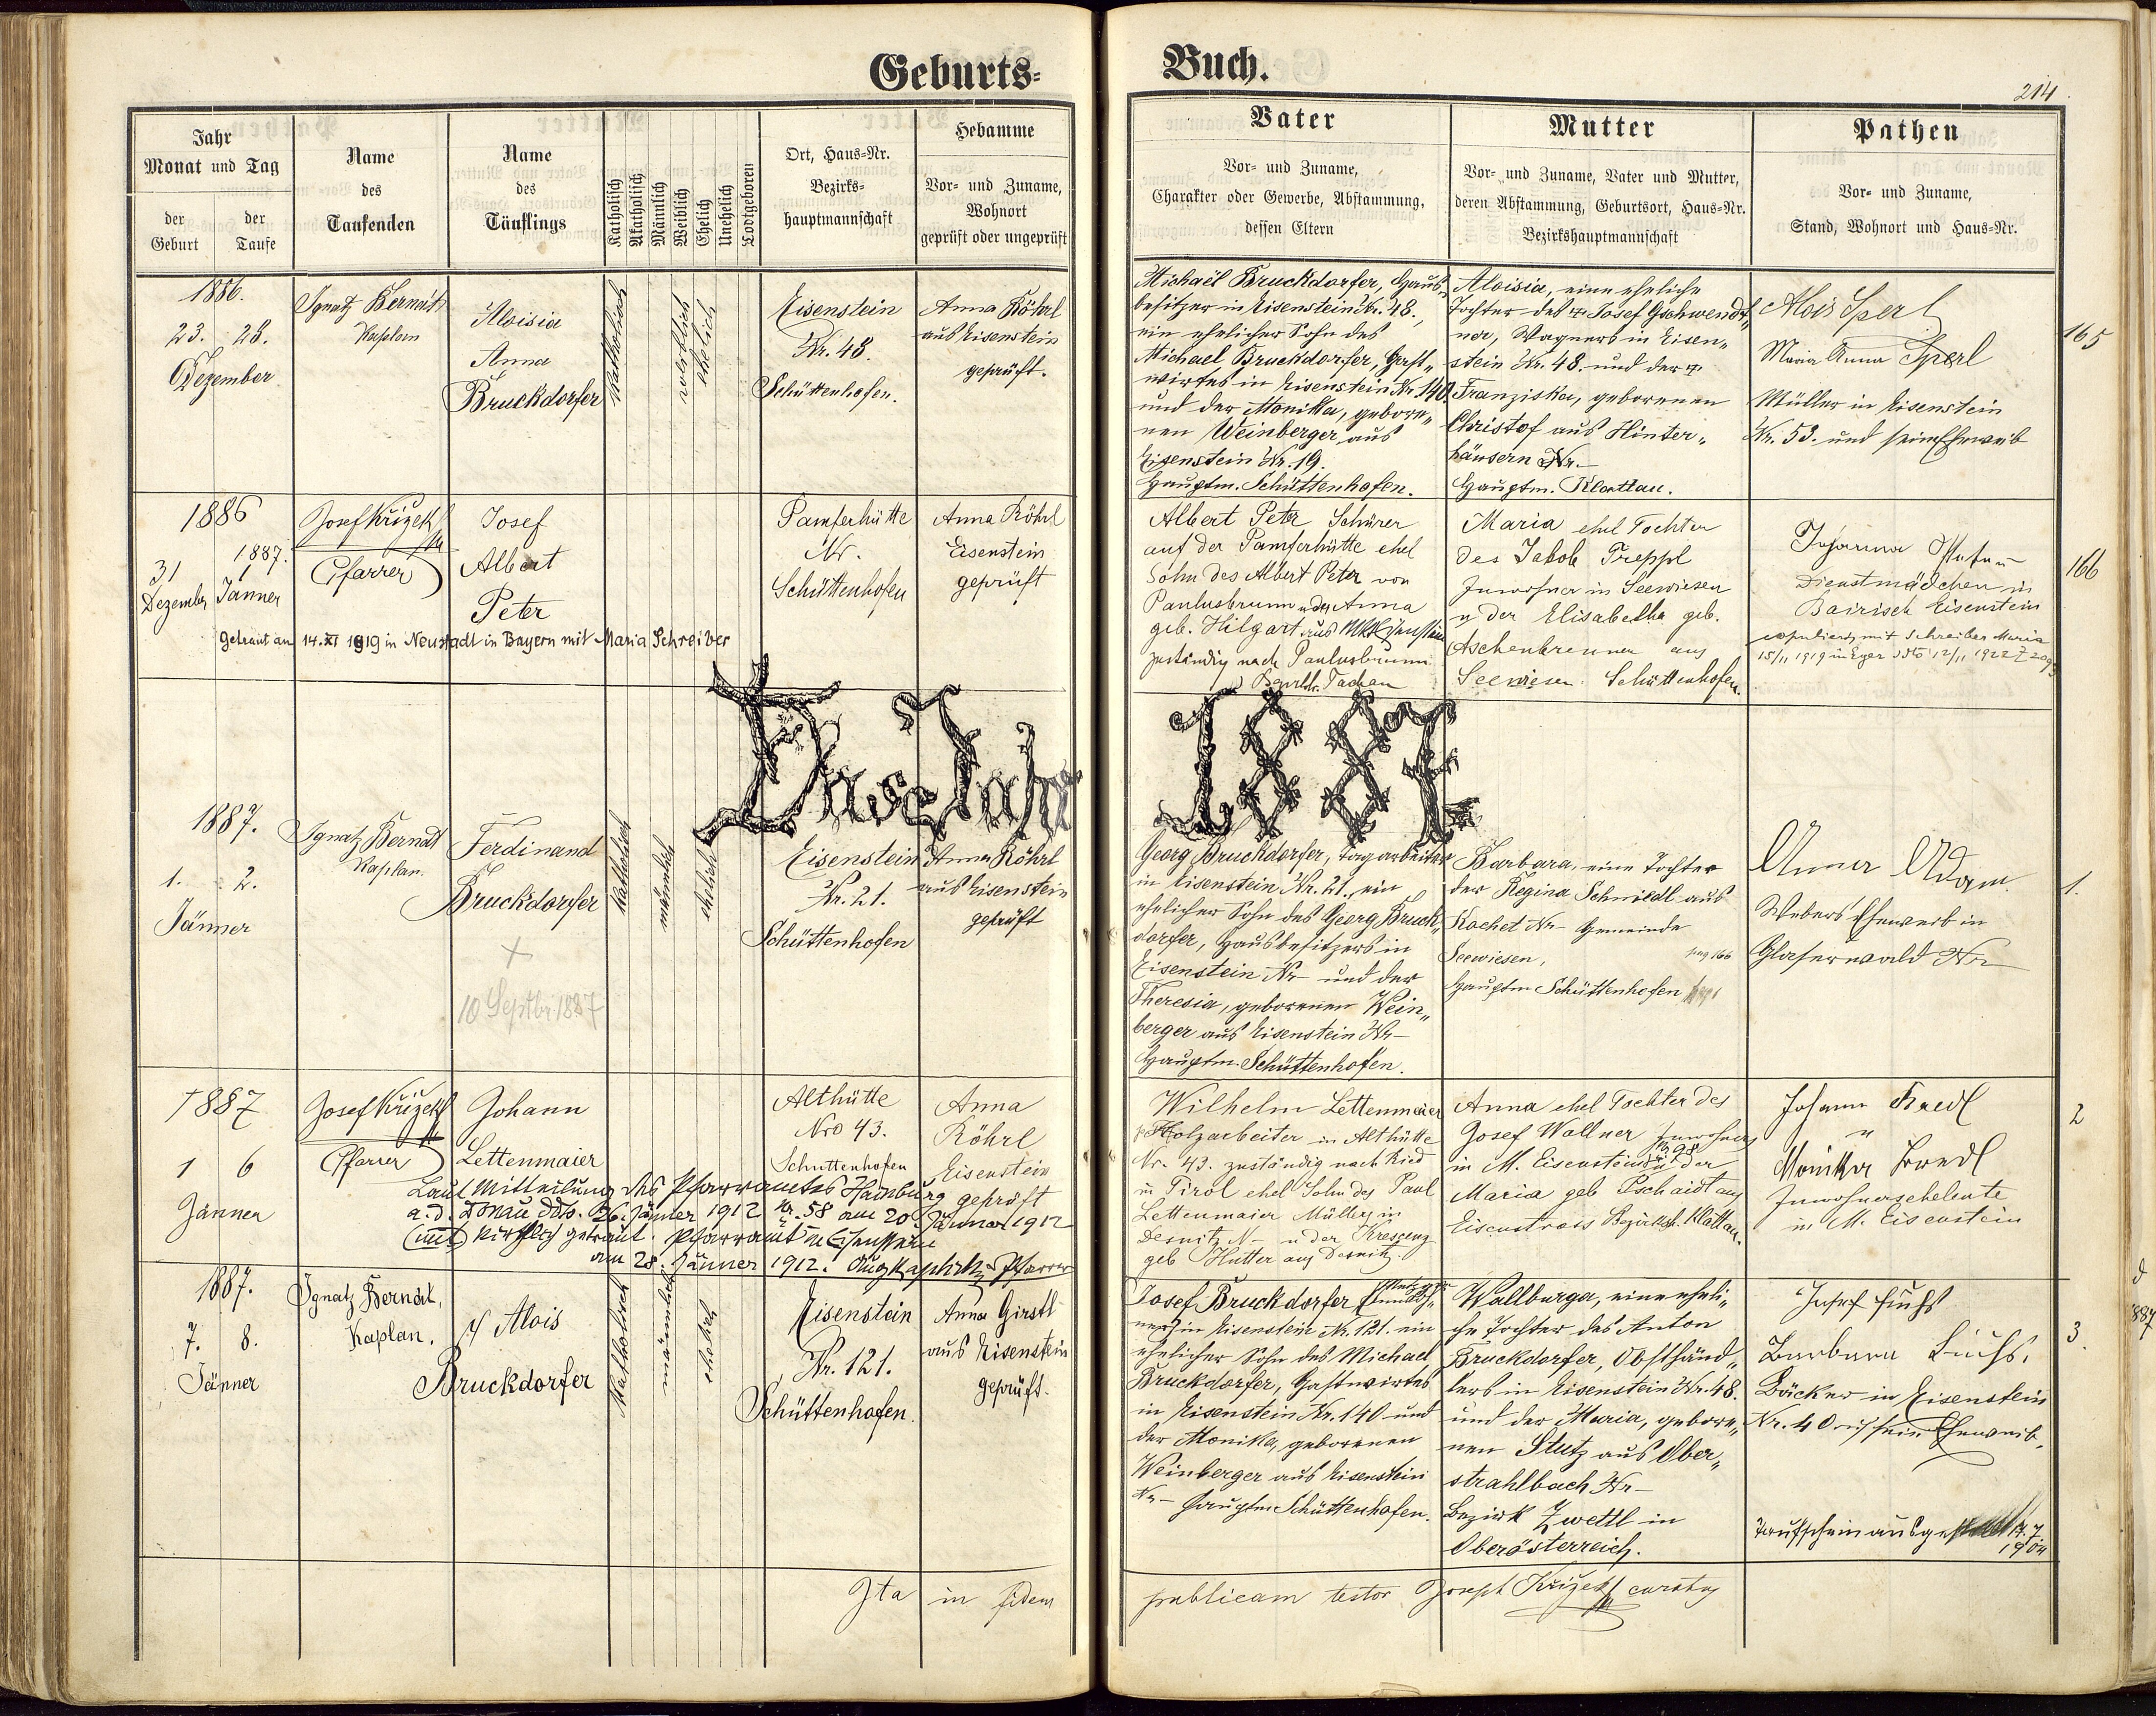 Geburts-
Buch.
214
Jahr
Monat und Tag
der Geburt
der Taufe
Name
des
Taufenden
Name
des
Täuflings
Katholisch
Akatholisch
Männlich
Weiblich
Ehelich
Unehelich
Todtgeboren
Ort, Haus-Nr.
Bezirks-
hauptmannschaft
Hebamme
Vor- und Zuname,
Wohnort
geprüft oder ungeprüft
Vater
Vor- und Zuname,
Charakter oder Gewerbe, Abstammung,
dessen Eltern
Mutter
Vor- und Zuname, Vater und Mutter,
deren Abstammung, Geburtsort, Haus-Nr.
Bezirkshauptmannschaft
Pathen
Vor- und Zuname,
Stand, Wohnort und Haus-Nr.
1886.
23. 28.
Dezember
Ignatz Berndt
Kaplan
Aloisia
Anna
Bruckdorfer
Katholisch
weiblich
ehelich
Eisenstein
Nr. 48.
Schüttenhofen.
Anna Röhrl
aus Eisenstein
geprüft.
Michael Bruckdorfer, Haus-
besitzer in Eisenstein Nr. 48.,
ein ehelicher Sohn des
Michael Bruckdorfer, Gast-
wirtes in Eisenstein Nr. 140.
und der Monika, gebore-
nen Weinberger aus
Eisenstein Nr. 19.
Hauptm. Schüttenhofen.
Aloisia, eine eheliche
Tochter des † Josef Gschwendt-
ner, Wagners in Eisen-
stein Nr. 48. und der †
Franziska, geborenen
Christof aus Hinter-
häusern Nr. –
Hauptm. Klattau.
Alois Sperl
Maria Anna Sperl
Müller in Eisenstein
Nr. 53. und sein Eheweib
165
1886
31 Dezember
1887.
1 Jänner
Josef Křižek
Pfarrer
Josef
Albert
Peter
Pamferhütte
Nr.
Schüttenhofen
Anna Röhrl
Eisenstein
geprüft
Getraut am 14. XI 1919 in Neustadt in Bayern mit Maria Schreiber
Albert Peter Schürer
auf der Pamferhütte ehel
Sohn des Albert Peter von
Paulusbrunn u der Anna
geb. Hilgart aus
zuständig nach Paulusbrunn
Tachau
Maria ehel Tochter
des Jakob Treppl
Inwohner in Seewiesen
u der Elisabetha geb.
Aschenbrenner aus
Seewiesen Schüttenhofen.
Johanna
Dienstmädchen in
Bairisch Eisenstein
copuliert mit Schreiber Maria
15/11 1919 in Eger ddto 12/11 1922
166
Das Jahr 1887
1887.
1. 2.
Jänner
Ignatz Berndt
Kaplan.
Ferdinand
Bruckdorfer
10 Septbr 1887
Katholisch
männlich
ehelich
Eisenstein
Nr. 21.
Schüttenhofen
Anna Röhrl
aus Eisenstein
geprüft
Georg Bruckdorfer, Tagarbeiter
in Eisenstein Nr. 21. ein
ehelicher Sohn des Georg Bruck-
dorfer, Hausbesitzers in
Eisenstein Nr – und der
Theresia, geborenen Wein-
berger aus Eisenstein Nr –
Hauptm. Schüttenhofen.
Barbara, eine Tochter
der Regina Schmidl aus
Kochet Nr – Gemeinde
Seewiesen,
pag 166
Hauptm Schüttenhofen
Anna Adam
Webers Eheweib in
Glaserwald Nr –
1.
1887
1 6
Jänner
Josef Křižek
Pfarrer
Johann
Lettenmaier
Althütte
Nro 43.
Schüttenhofen
Anna
Röhrl
Eisenstein
geprüft
Laut Mitteilung des Pfarramtes Hainburg
a. d. Donau ddto. 26. Jänner 1912 Nr. 58 am 20. Jänner 1912
kirchlich getraut. Pfarramt in Eisenstein
am 28. Jänner 1912. Pfarrer
Wilhelm Lettenmaier
Holzarbeiter in Althütte
Nr. 43. zuständig nach Ried
in Tirol ehel Sohn des Paul
Lettenmaier Müller in
Desnitz N – u der Kressenz
geb Hutter aus Desnitz.
Anna ehel Tochter des
Josef Wallner Inwohner
in M. Eisenstein N 98 u der
Maria geb Pschaidt aus
Eisenstrass Bezirksh. Klattau.
Johann Bredl
u
Monika Bredl
Inwohnerseheleute
in M. Eisenstein
2
1887.
7. 8.
Jänner
Ignatz Berndt,
Kaplan.
Alois
Bruckdorfer
Katholisch
männlich
ehelich
Eisenstein
Nr. 121.
Schüttenhofen.
Anna Girstl
aus Eisenstein
geprüft.
Josef Bruckdorfer
ner in Eisenstein Nr. 121. ein
ehelicher Sohn des Michael
Bruckdorfer, Gastwirtes
in Eisenstein Nr. 140 und
der Monika, geborenen
Weinberger aus Eisenstein
Nr – Hauptm Schüttenhofen.
Wallburga, eine eheli-
che Tochter des Anton
Bruckdorfer, Obsthänd-
lers in Eisenstein Nr. 48.
und der Maria, gebore-
nen Stutz aus Ober-
strahlbach Nr –
Bezirk Zwettl in
Oberösterreich.
Josef Fuchs
Barbara Fuchs,
Bäcker in Eisenstein
Nr. 40 sein Eheweib.
Taufschein ausgestellt 14. 7 1904
3.
Ita in fidem publicam testor Joseph Křižek curatus